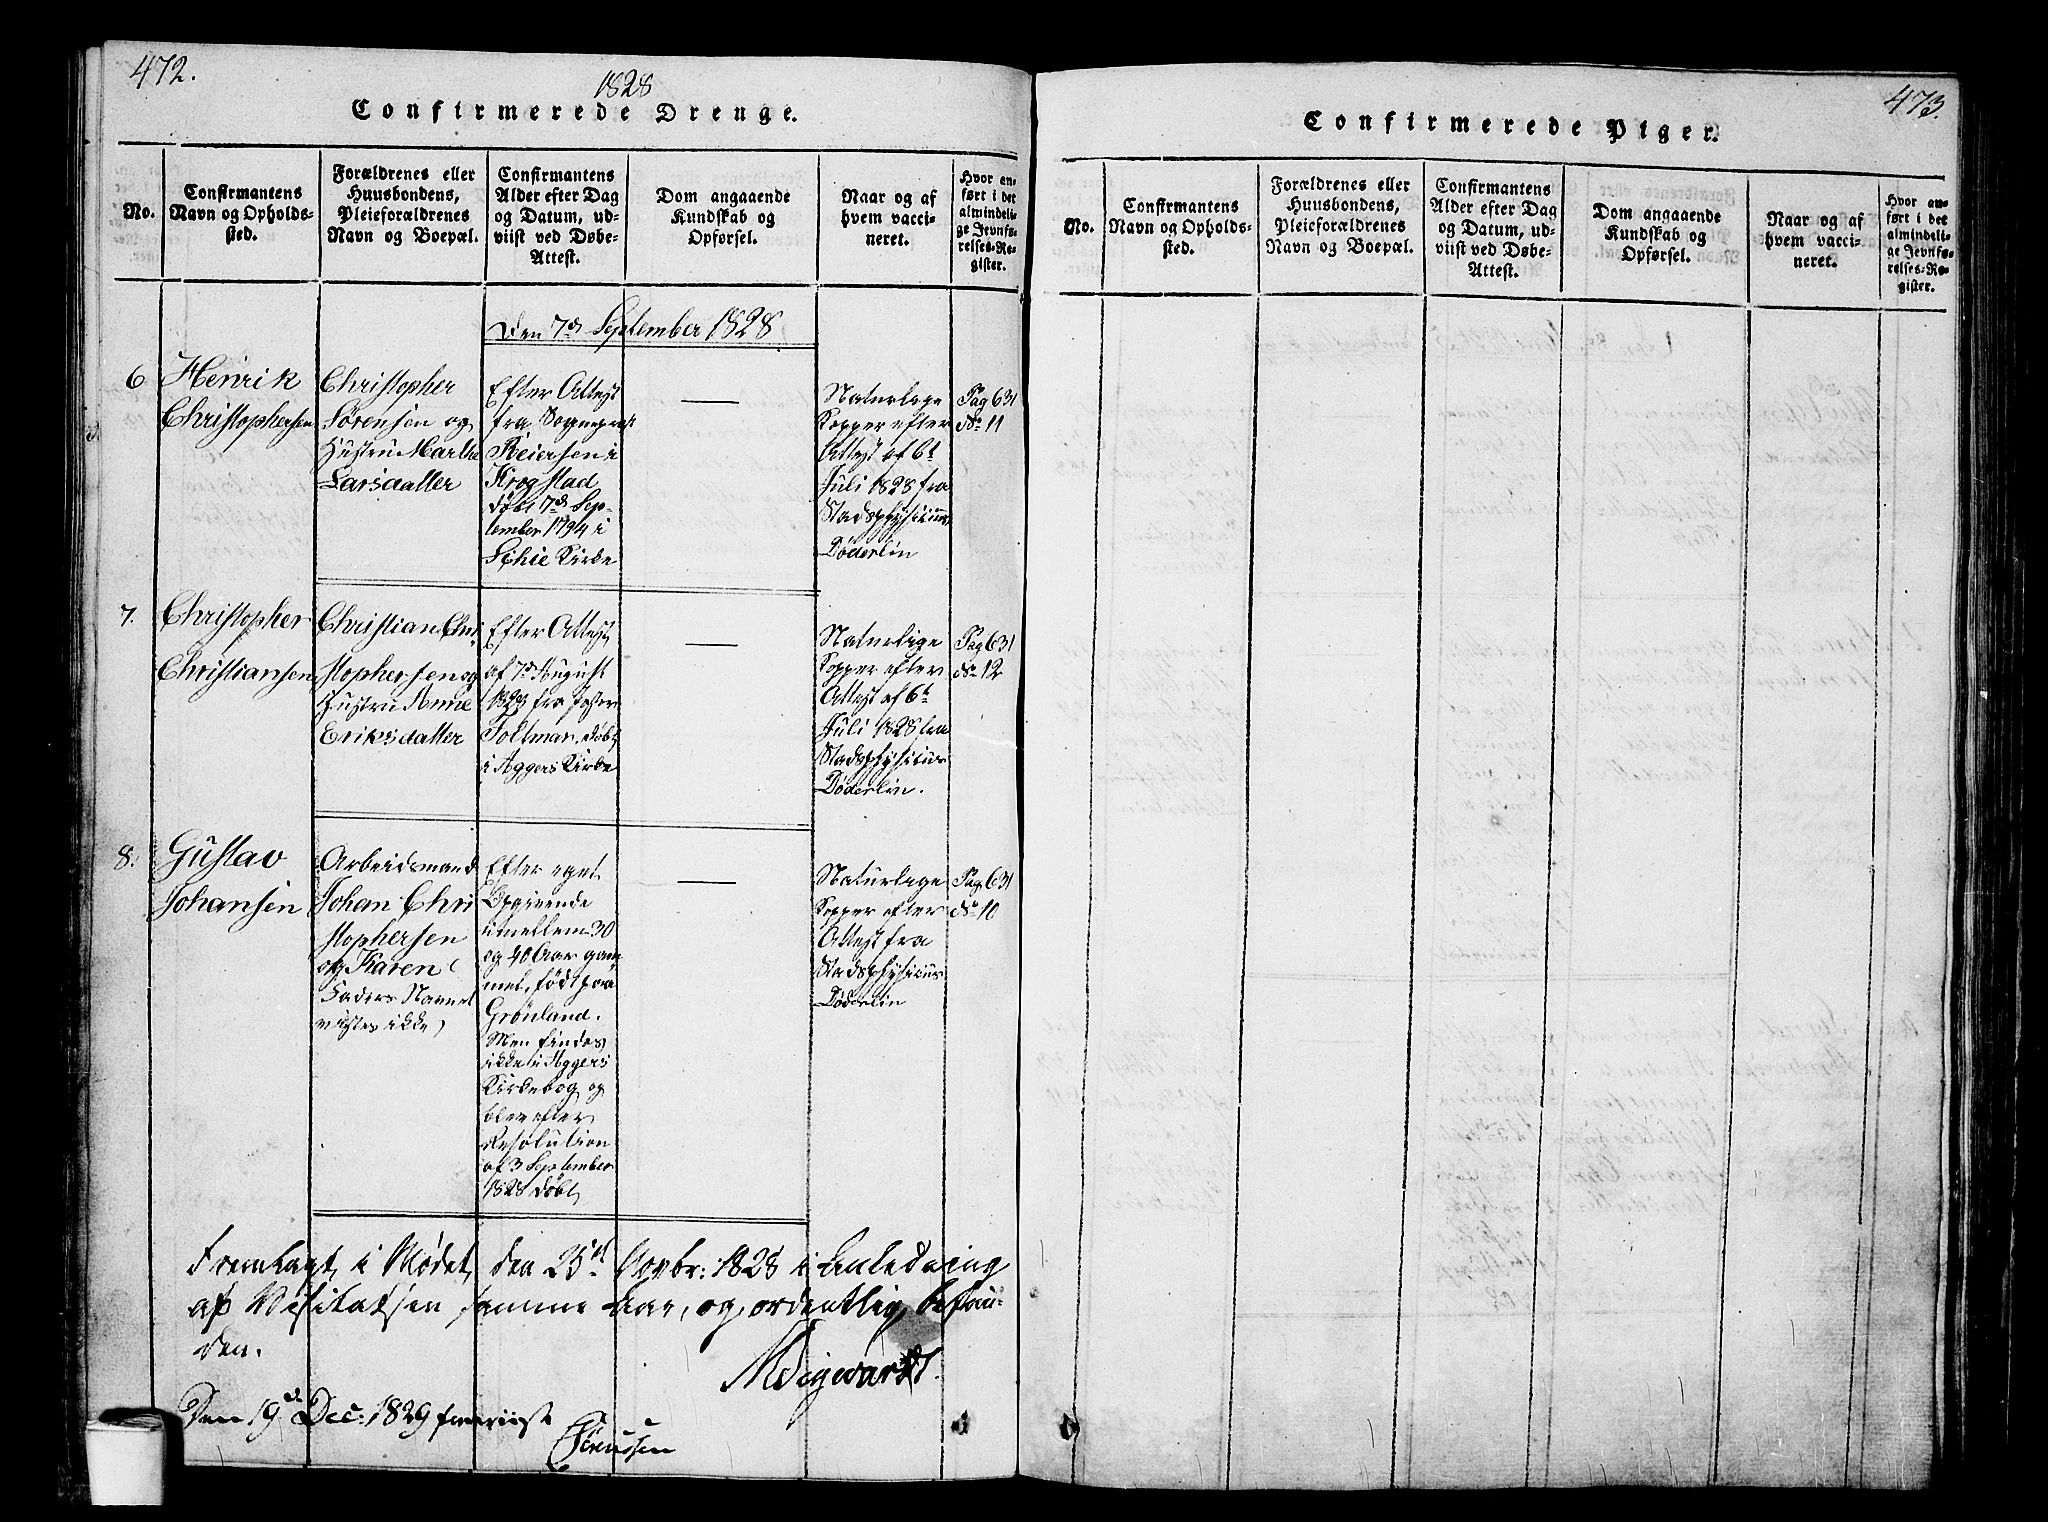 472.
1828
Confirmerede Drenge.
No.
Confirmantens
Navn og Opholds-
sted.
Forældrenes eller
Huusbondens,
Pleieforældrenes
Navn og Boepæl.
Confirmantens
Alder efter Dag
og Datum, ud-
viist ved Døbe-
Attest.
Dom angaaende
Kundskab og
Opførsel.
Naar og af
hvem vacci-
neret.
Hvor an-
ført i det
almindeli-
ge Jevnfø-
relses-Re-
gister.
Den 7de September 1828
6
Henrik
Christophersen
Christopher
Sørensen og
Hustru Marthe
Larsdatter
Efter Attest
fra Sognepræst
Reiersen i
Krogstad
døbt 7de Sep-
tember 1794 i
Schie Kirke
Naturlige
Kopper efter
Attest af 6t
Juli 1828 fra
Stadsphysicus
Døderlin
Pag 631
No 11
7.
Christopher
Christiansen
Christian Chri-
stophersen og
Hustru Anne
Eriksdatter
Efter Attest
af 7de August
1828 fra Pastor
Toltman. døbt
i Aggers Kirke
Naturlige
Kopper efter
Attest af 6t
Juli 1828 fra
Stadsphysicus
Døderlin.
Pag 631
No 12
8.
Gustav
Johansen
Arbeidsmand
Johan Chri
stophersen
og Karen (
Faders Navnet
vistes ikke)
Efter eget
Opgivende
imellem 30
og 40 Aar gam-
mel, født paa
Grönland.
Men findes
ikke i Aggers
Kirkebog og
blev efter
Resolution
af 3 September
1828 døbt
Naturlige
Kopper efter
Attest fra
Stadsphysicus
Døderlin
Pag 631
No 10
Fremlagt i Mødet den 25de Novbr: 1828 i Anledning
af Visitatsen samme Aar, og ordentlig befun-
den.
Den 19de Dec: 1829 foreviist
Sørenssen
473.
Confirmerede Piger.
No.
Confirmantens
Navn og Opholds-
sted.
Forældrenes eller
Huusbondens,
Pleieforældrenes
Navn og Boepæl.
Confirmantens
Alder efter Dag
og Datum, ud-
viist ved Døbe-
Attest.
Dom angaaende
Kundskab og
Opførsel.
Naar og af
hvem vacci-
neret.
Hvor an-
ført i det
almindeli-
ge Jevnfø-
relses-Re-
gister.